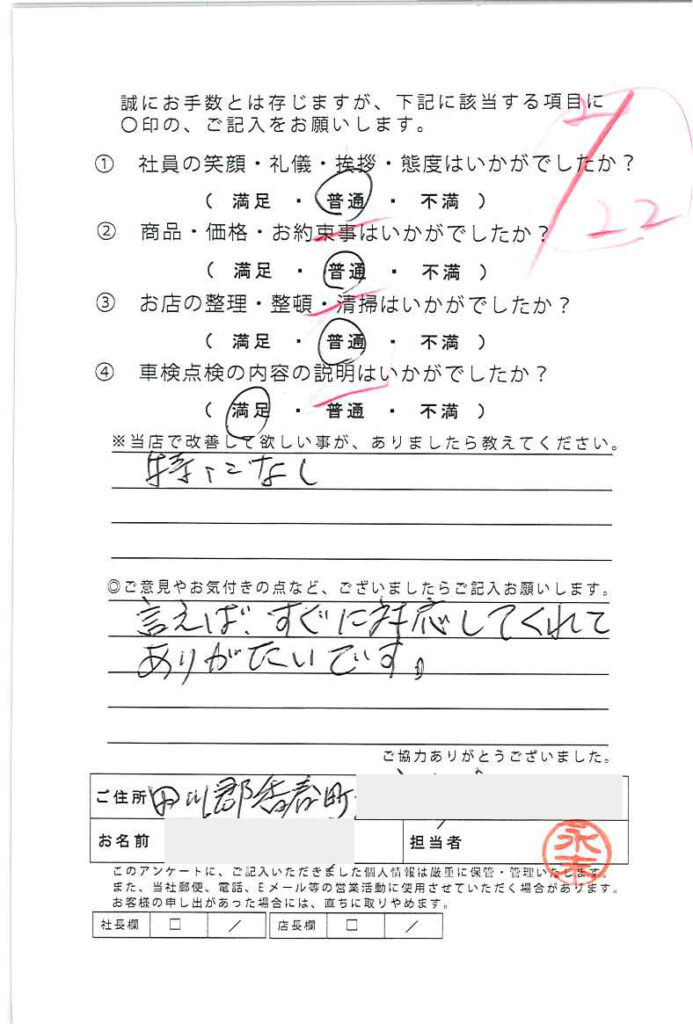 誠にお手数とは存じますが、下記に該当する項目に
〇印の、ご記入をお願いします。
① 社員の笑顔・礼儀・挨拶・態度はいかがでしたか？
( 満足 ・ 普通 ・ 不満 )
② 商品・価格・お約束事はいかがでしたか？
( 満足 ・ 普通 ・ 不満 )
③ お店の整理・整頓・清掃はいかがでしたか？
( 満足 ・ 普通 ・ 不満 )
④ 車検点検の内容の説明はいかがでしたか？
( 満足 ・ 普通 ・ 不満 )
22
※当店で改善して欲しい事が、ありましたら教えてください。
特になし
◎ご意見やお気付きの点など、ございましたらご記入お願いします。
言えば、すぐに対応してくれて
ありがたいです。
ご協力ありがとうございました。
ご住所 田川郡香春町
お名前 担当者
このアンケートに、ご記入いただきました個人情報は厳重に保管・管理いたします。
また、当社郵便、電話、Eメール等の営業活動に使用させていただく場合があります。
お客様の申し出があった場合には、直ちに取りやめます。
社長欄 □ / 店長欄 □ /